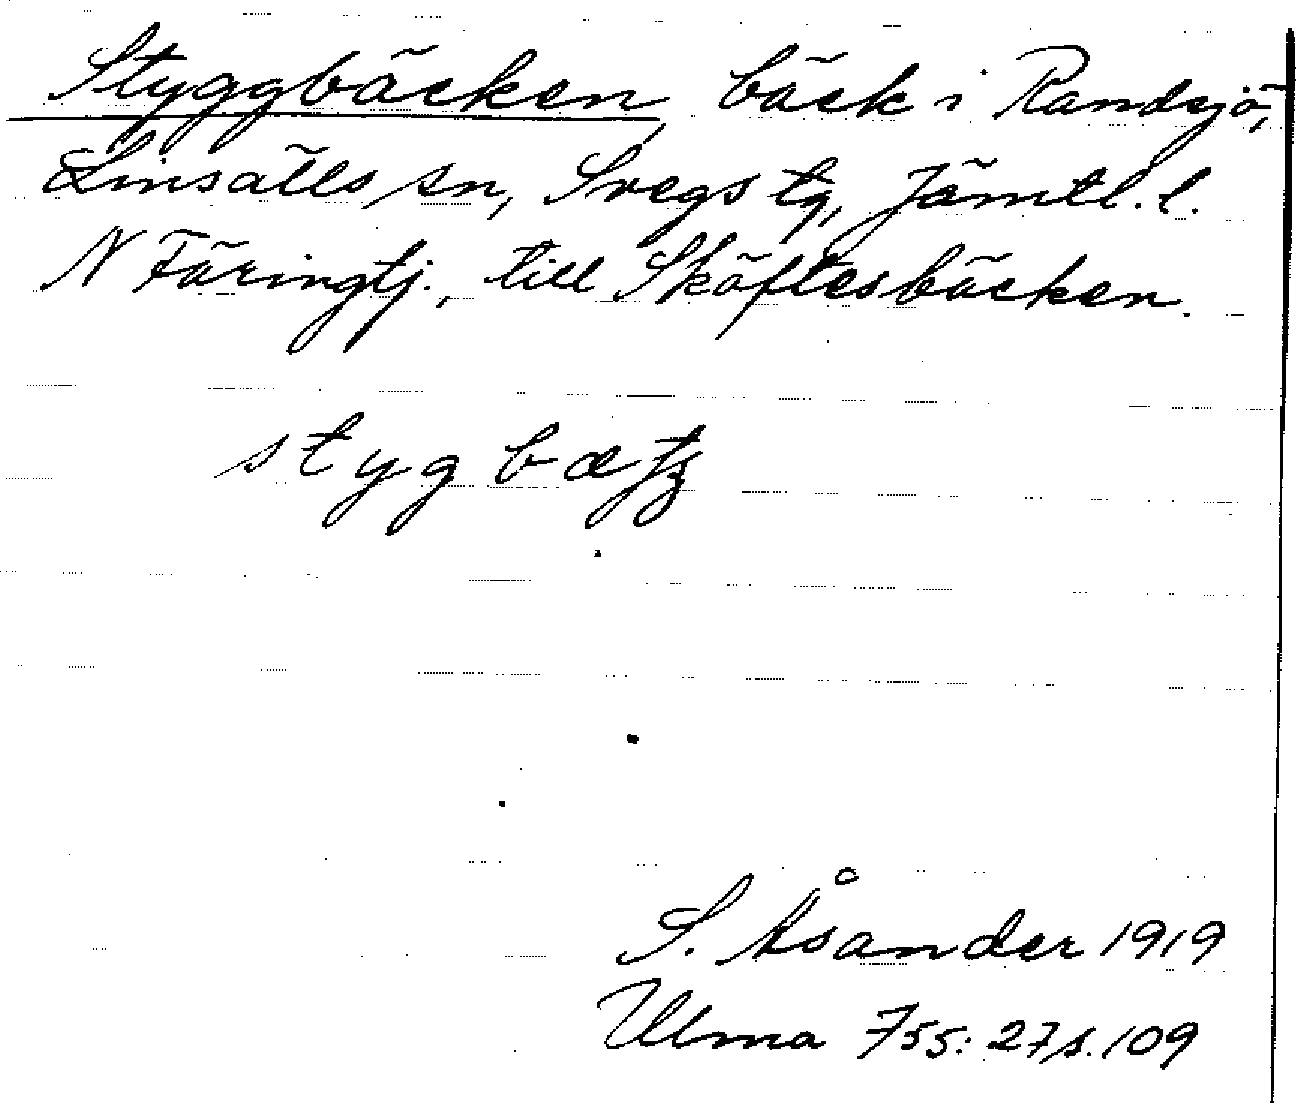 Styggbäcken, bäck i Randsjö,
Linsälls sn, Svegs tg, Jämtl. l.
N Färingtj., till Skäftesbäcken.
stygbæ
S. Åsander 1919
Ulma 755:27 s. 109